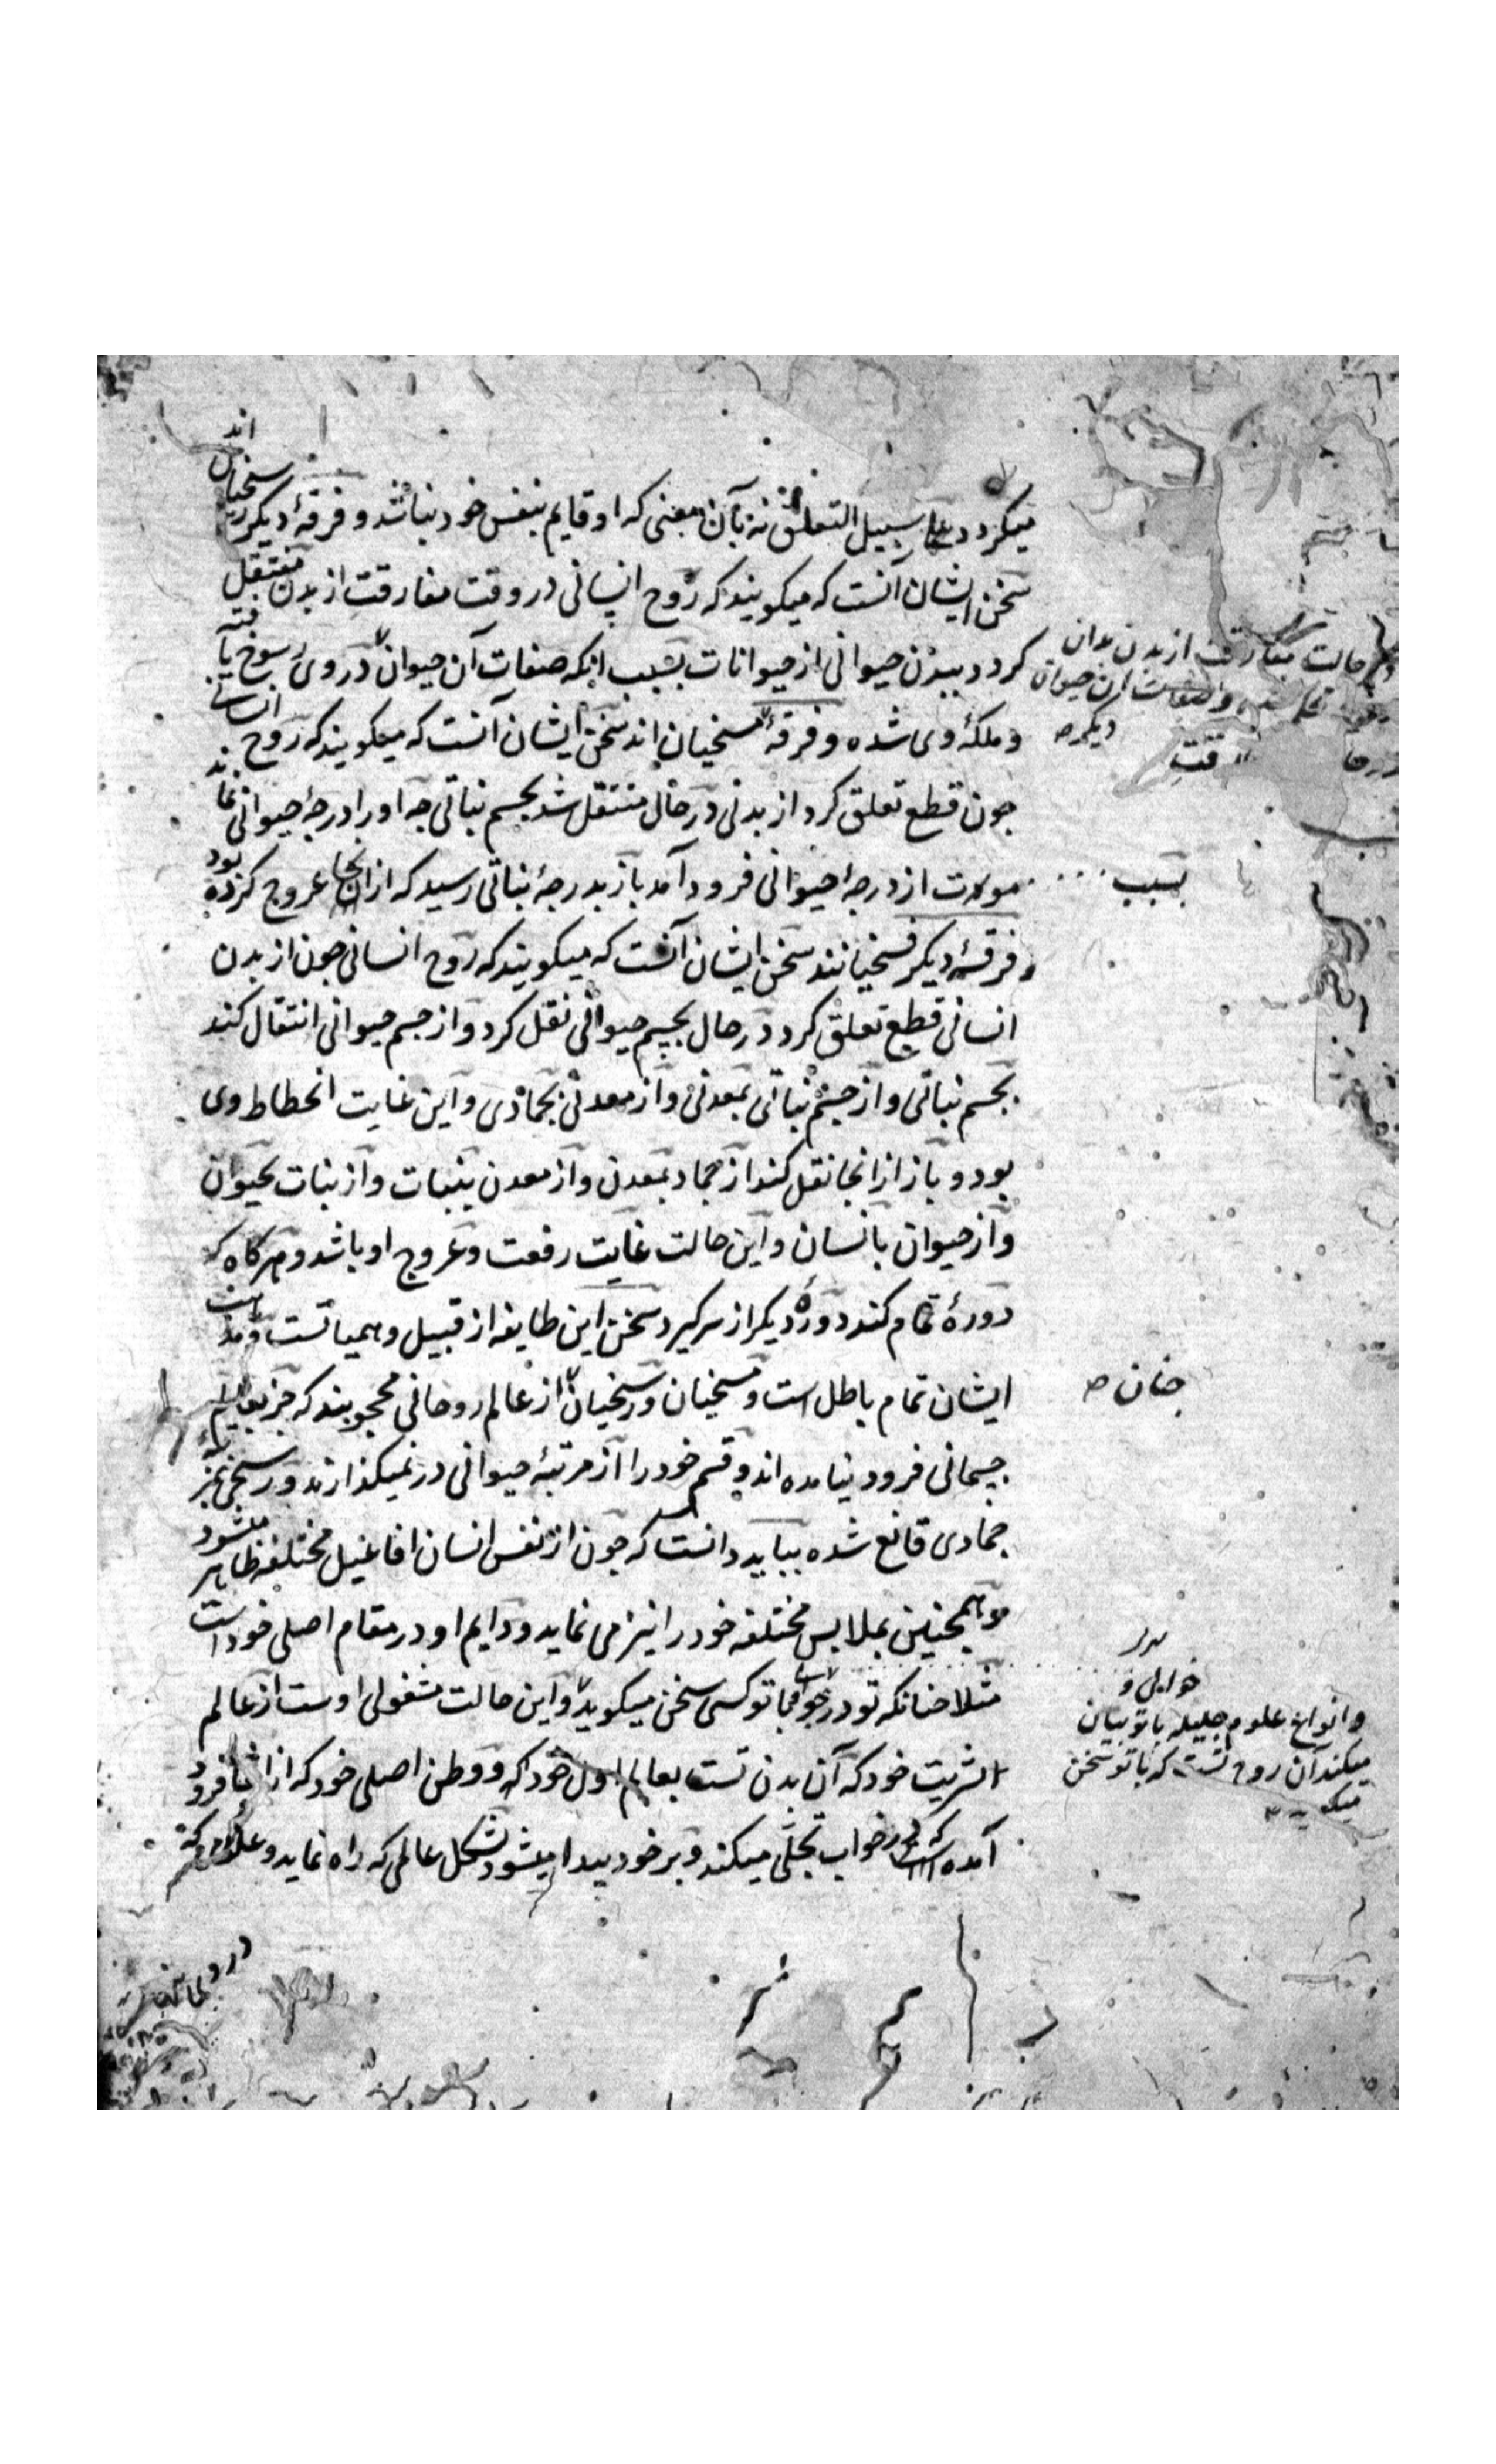 میکردد علی سبیل التعلق نه بآن معنی که او قایم بنفس خود نباشد و فرقهٔ دیکر رسخیان اند
سخن ایشان آنست که میکویند که روح انسانی در وقت مفارقت از بدن منتقل
کردد ببدن حیوانی از حیوانات بسبب انکه صفات آن حیوان در وی رسوخ یافته
و ملکهٔ وی شده و فرقهٔ مسخیان اند سخن ایشان آنست که میکویند که روح انسانی
جون قطع تعلق کرد از بدنی در حال منتقل شد بجسم نباتی جه او را درجهٔ حیوانی نماند
از درجهٔ حیوانی فرود آمد باز بدرجهٔ نباتی رسید که از انجا عروج کرده بود
و فرقهٔ دیکر فسخیانند سخن ایشان آنست که میکویند که روح انسانی جون از بدن
انسانی قطع تعلق کرد در حال بجسم حیوانی نقل کرد و از جسم حیوانی انتقال کند
بجسم نباتی و از جسم نباتی بمعدنی و از معدنی بجمادی و این غایت انحطاط وی
بود و باز از انجا نقل کند از جماد بمعدن و از معدن بنبات و از نبات بحیوان
و از حیوان بانسان و این حالت غایت رفعت و عروج او باشد و هرکاه که
دورهٔ تمام کند دورهٔ دیکر از سر کیرد سخن این طایفه از قبیل وهمیاتست و مذهب
ایشان تمام باطل است و مسخیان و رسخیان از عالم روحانی محجوبند که جز بعالم
جسمانی فرود نیامده اند و قسم خود را از مرتبهٔ حیوانی در نمیکذارند و رسخی بمرتبه
جمادی قانع شده بباید دانست که جون از نفس انسان افاعیل مختلفه ظاهر میشود
همجنین بملابس مختلفه خود را نیز می نماید و دایم او در مقام اصلی خود است
مثلا جنانکه تو در خوابی با تو کسی سخن میکوید و این حالت مشغولی اوست از عالم
بشریت خود که آن بدن تست بعالم اول خود که و وطن اصلی خود که از انجا فرود
آمده است که در خواب تجلی میکند و بر خود پیدا میشود بشکل عالمی که راه نماید و علوم
حالت مفارقت از بدن
دیکر
بسبب
جنان
و انواع علوم جلیله با تو بیان
میکند آن روح تست که با تو سخن
میکوید